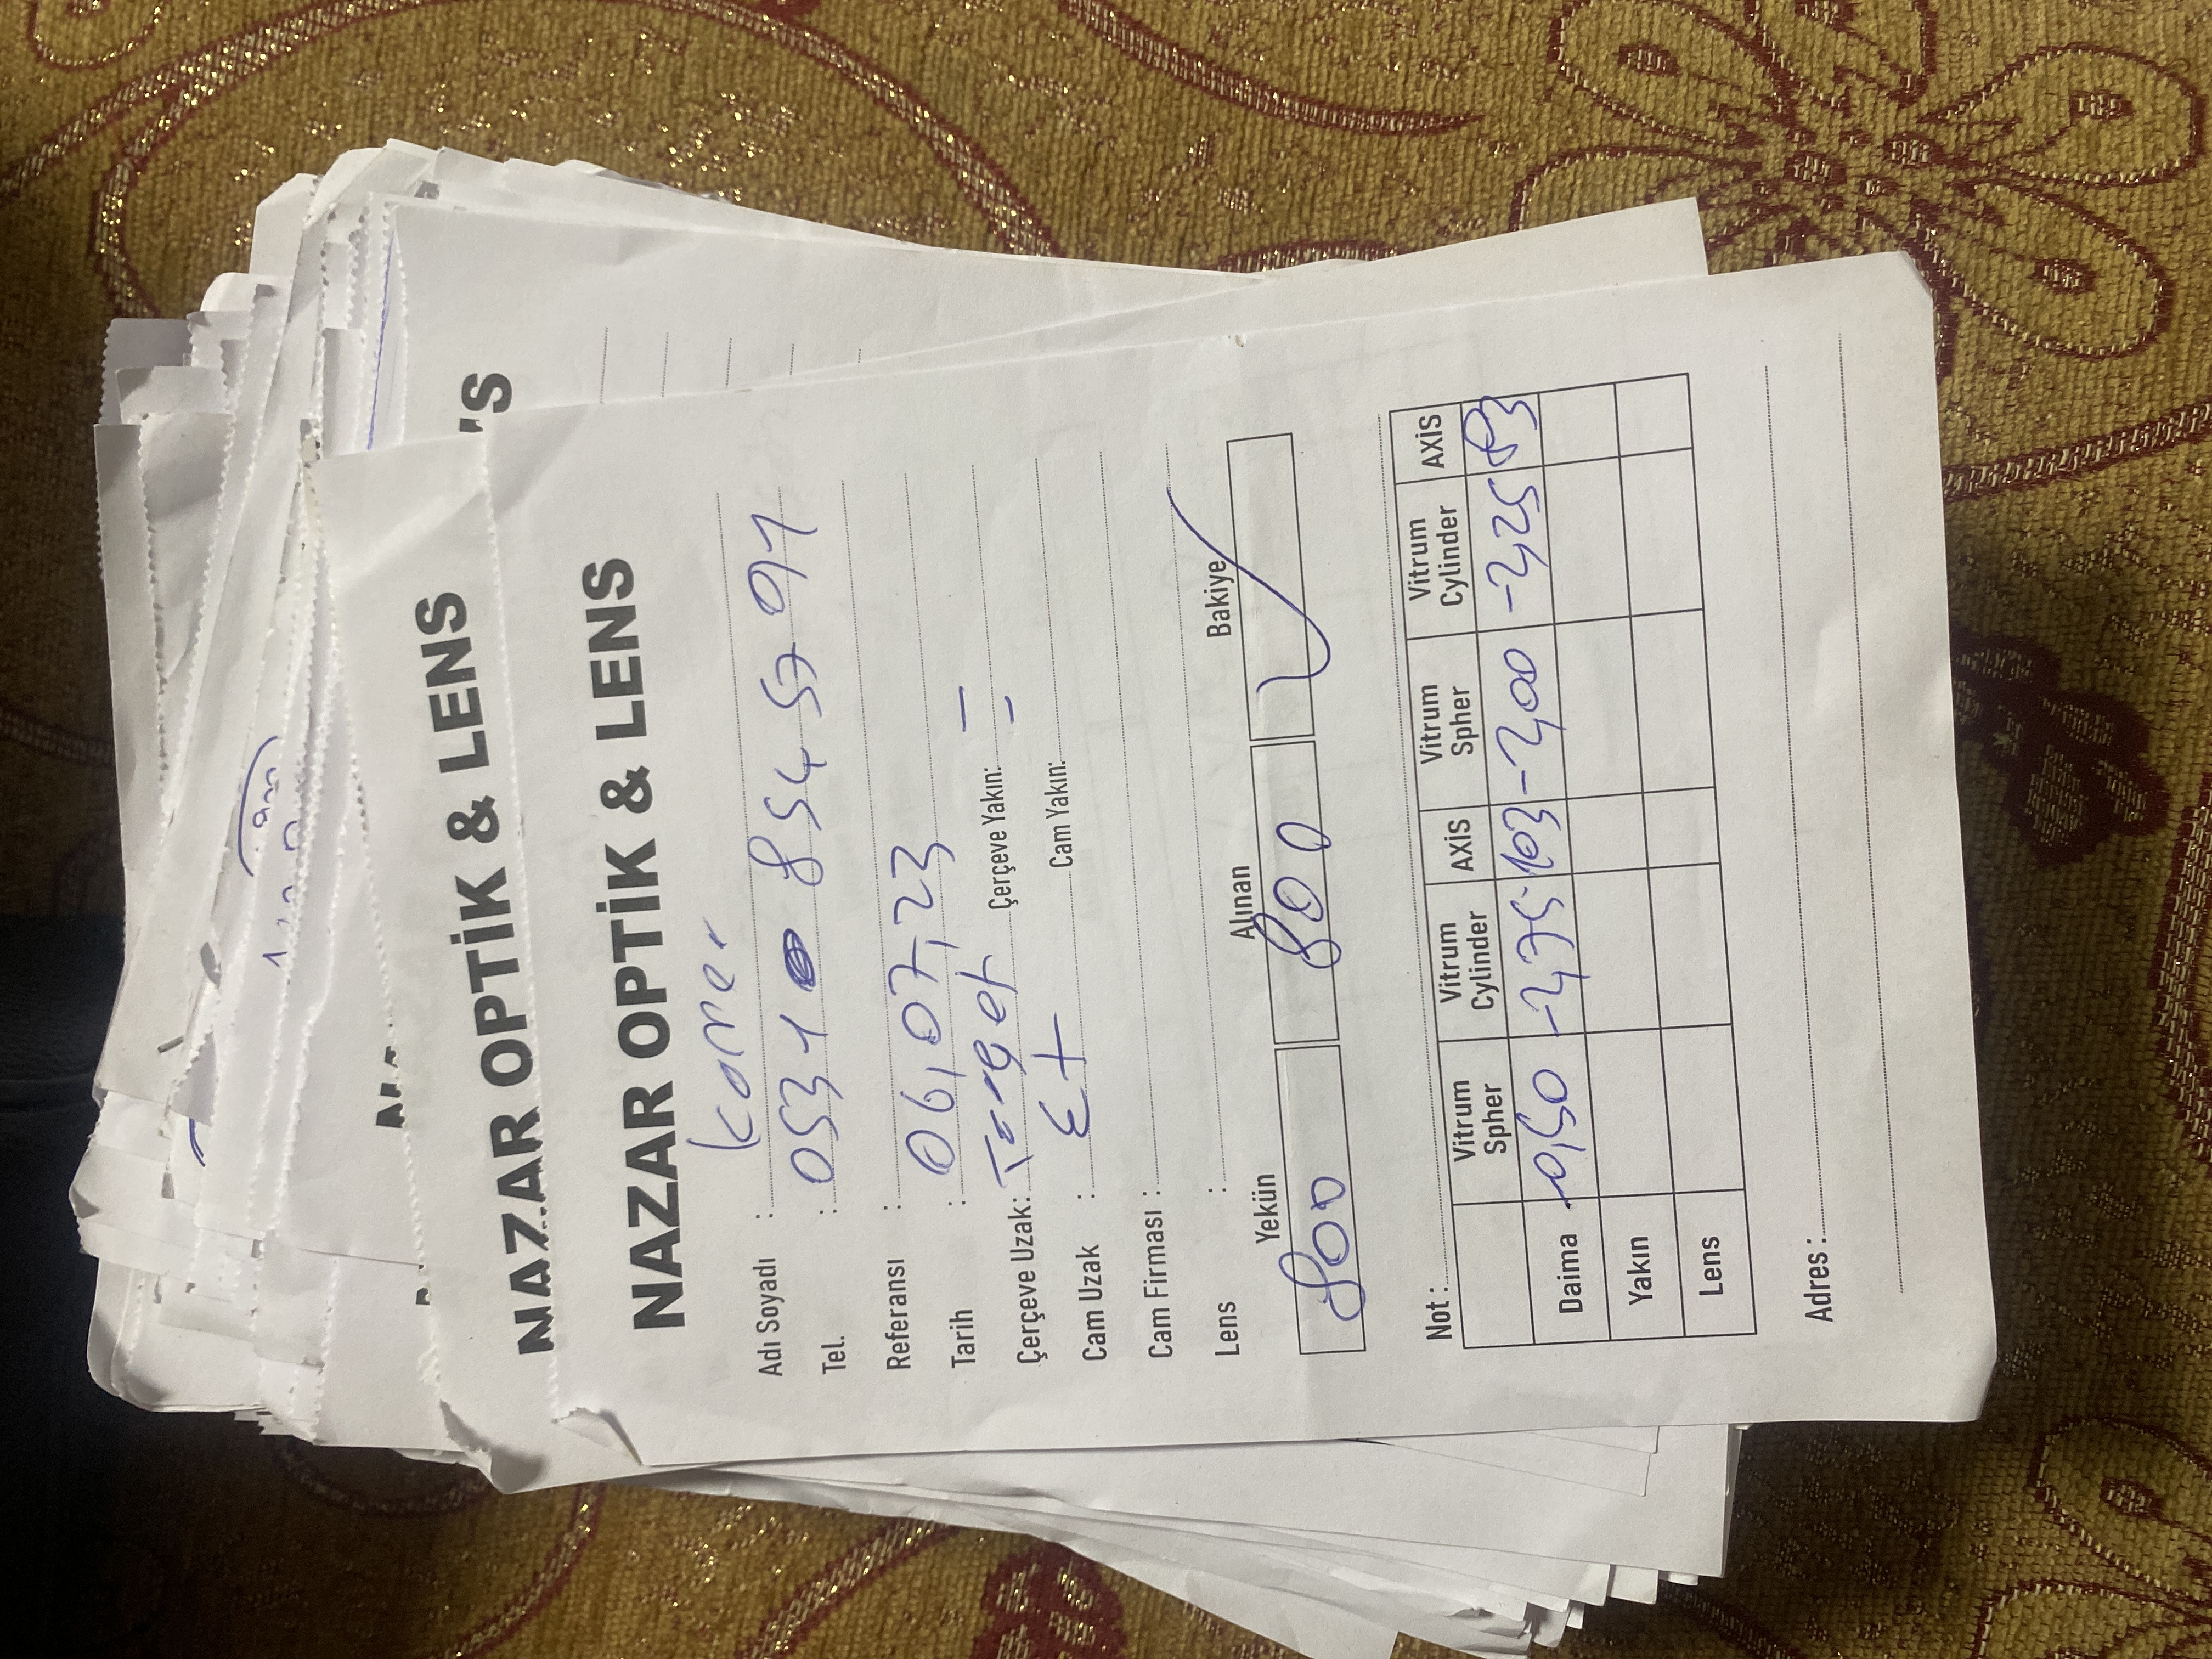 NAZAR OPTİK & LENS
'S
NAZAR OPTİK & LENS
Adı Soyadı : Kamer
Tel. : 0531 854 57 91
Referansı :
Tarih : 06,07,23
Çerçeve Uzak: Target Çerçeve Yakın:
Cam Uzak : Ex Cam Yakın:
Cam Firması :
Lens :
Yekün Alınan Bakiye
800 800 ✓
Not :
Vitrum Spher Vitrum Cylinder AXİS Vitrum Spher Vitrum Cylinder AXİS
Daima -0,50 -2,75 103 -2,00 -2,25 83
Yakın
Lens
Adres :